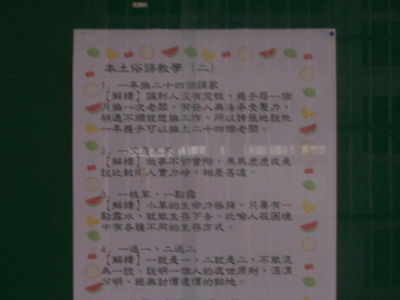 本土俗語教學（二）
1、一年換二十四個頭家
【解釋】諷刺人沒有定性，幾乎每一個
月換一次老闆。有些人無法承受壓力，
稍遇不順就想換工作，所以誇張地說他
一年幾乎可以換上二十四個老闆。
2、一
【解釋】做事不切實際，馬馬虎虎或是
說比較兩人實力時，相差甚遠。
3、一枝草，一點露
【解釋】小草的生命力極強，只要有一
點露水，就能生存下去。比喻人在困境
中有各種不同的生存方式。
4、一過一，二過二
【解釋】一就是一，二就是二，不能混
為一說。說明一個人的處世原則，涇渭
分明，絕無討價還價的餘地。